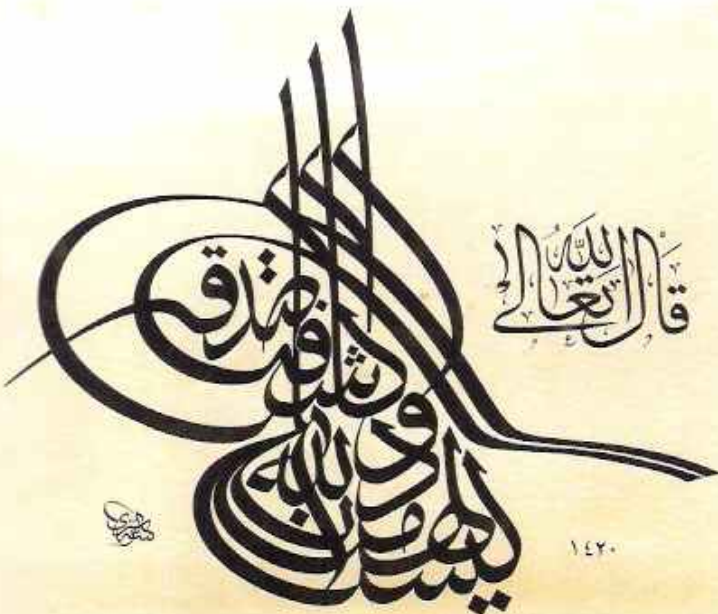 قَالَ اللّٰهُ تَعَالىٰ
ليس لها من دون الله كاشفة
صدق
١٤٢٠